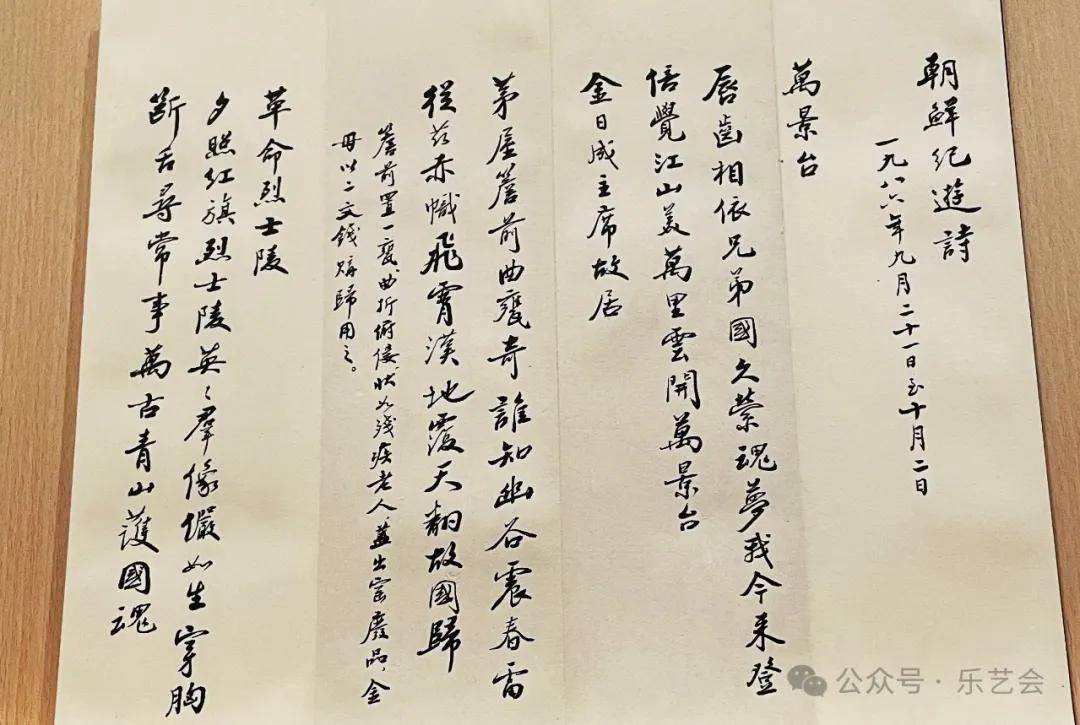 朝鮮紀遊詩
一九八六年九月二十一日至十月二日
萬景台
唇齒相依兄弟國久縈魂夢我今来登
悟覺江山美萬里雲開萬景台
金日成主席故居
茅屋簷前曲甕奇誰知幽谷震春雷
從茲赤幟飛霄漢地覆天翻故國歸
簷前置一甕，曲折俯僂，狀如殘疾老人，蓋出窑廢品，金
母以二文錢購歸用之。
革命烈士陵
夕照紅旗烈士陵英々羣像儼如生穿胸
斷舌尋常事萬古青山護國魂
公众号·乐艺会